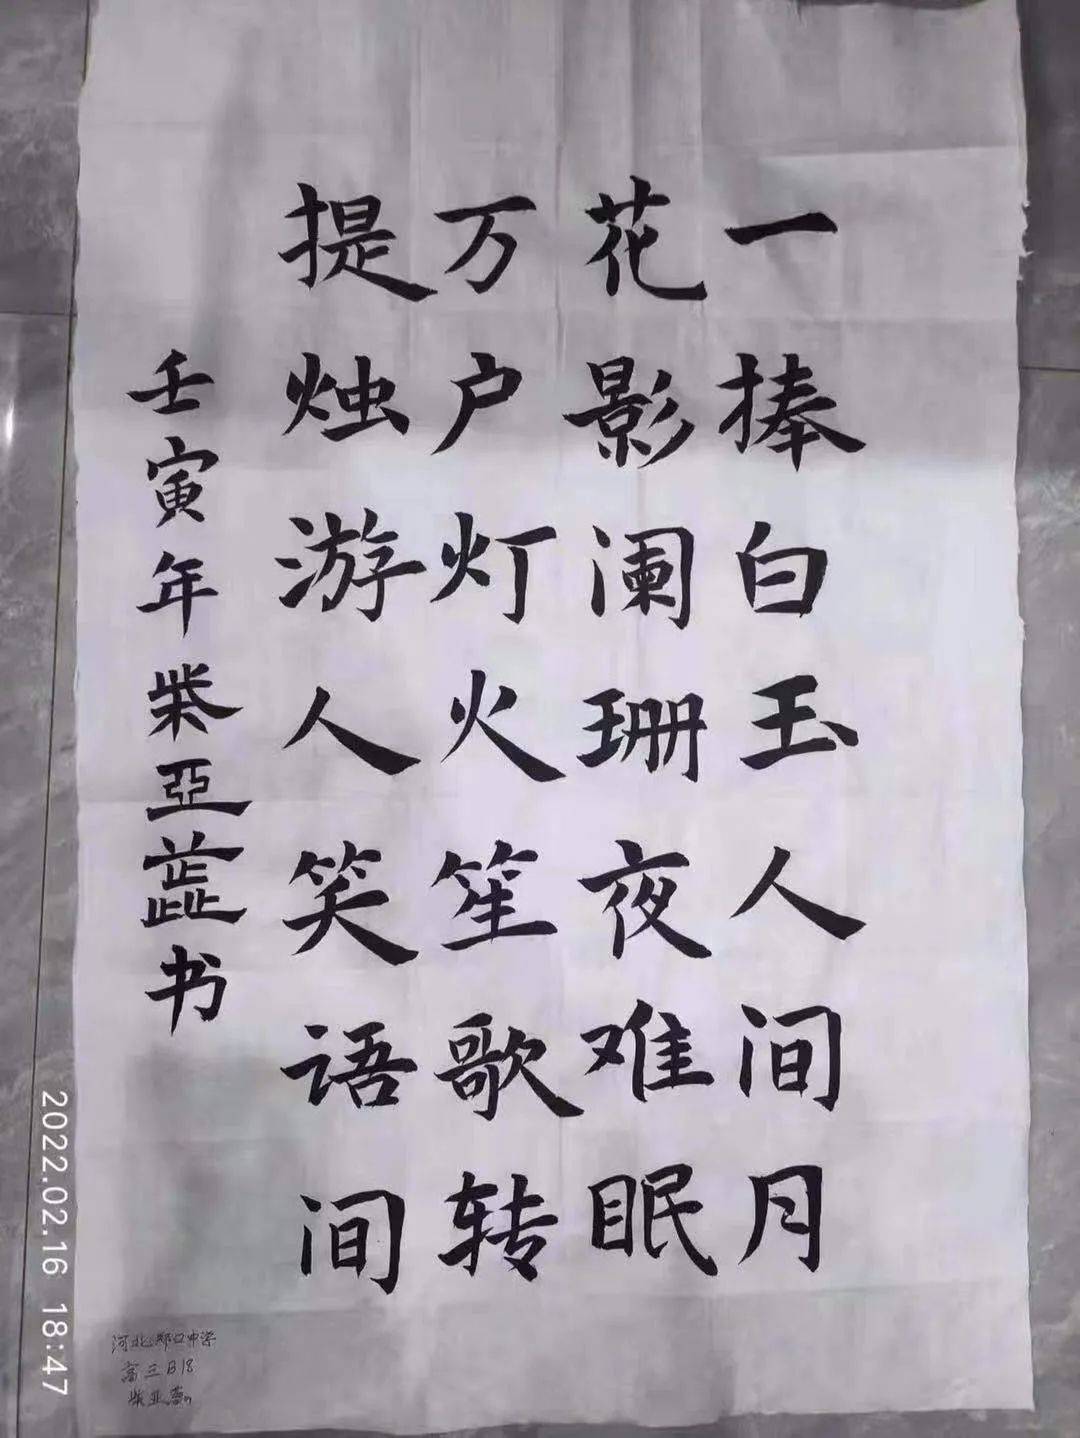 一捧白玉人间月
花影阑珊夜难眠
万户灯火笙歌转
提烛游人笑语间
壬寅年柴亚蕋书
河北郑口中学
高三B18
柴亚
2022.02.16 18:47